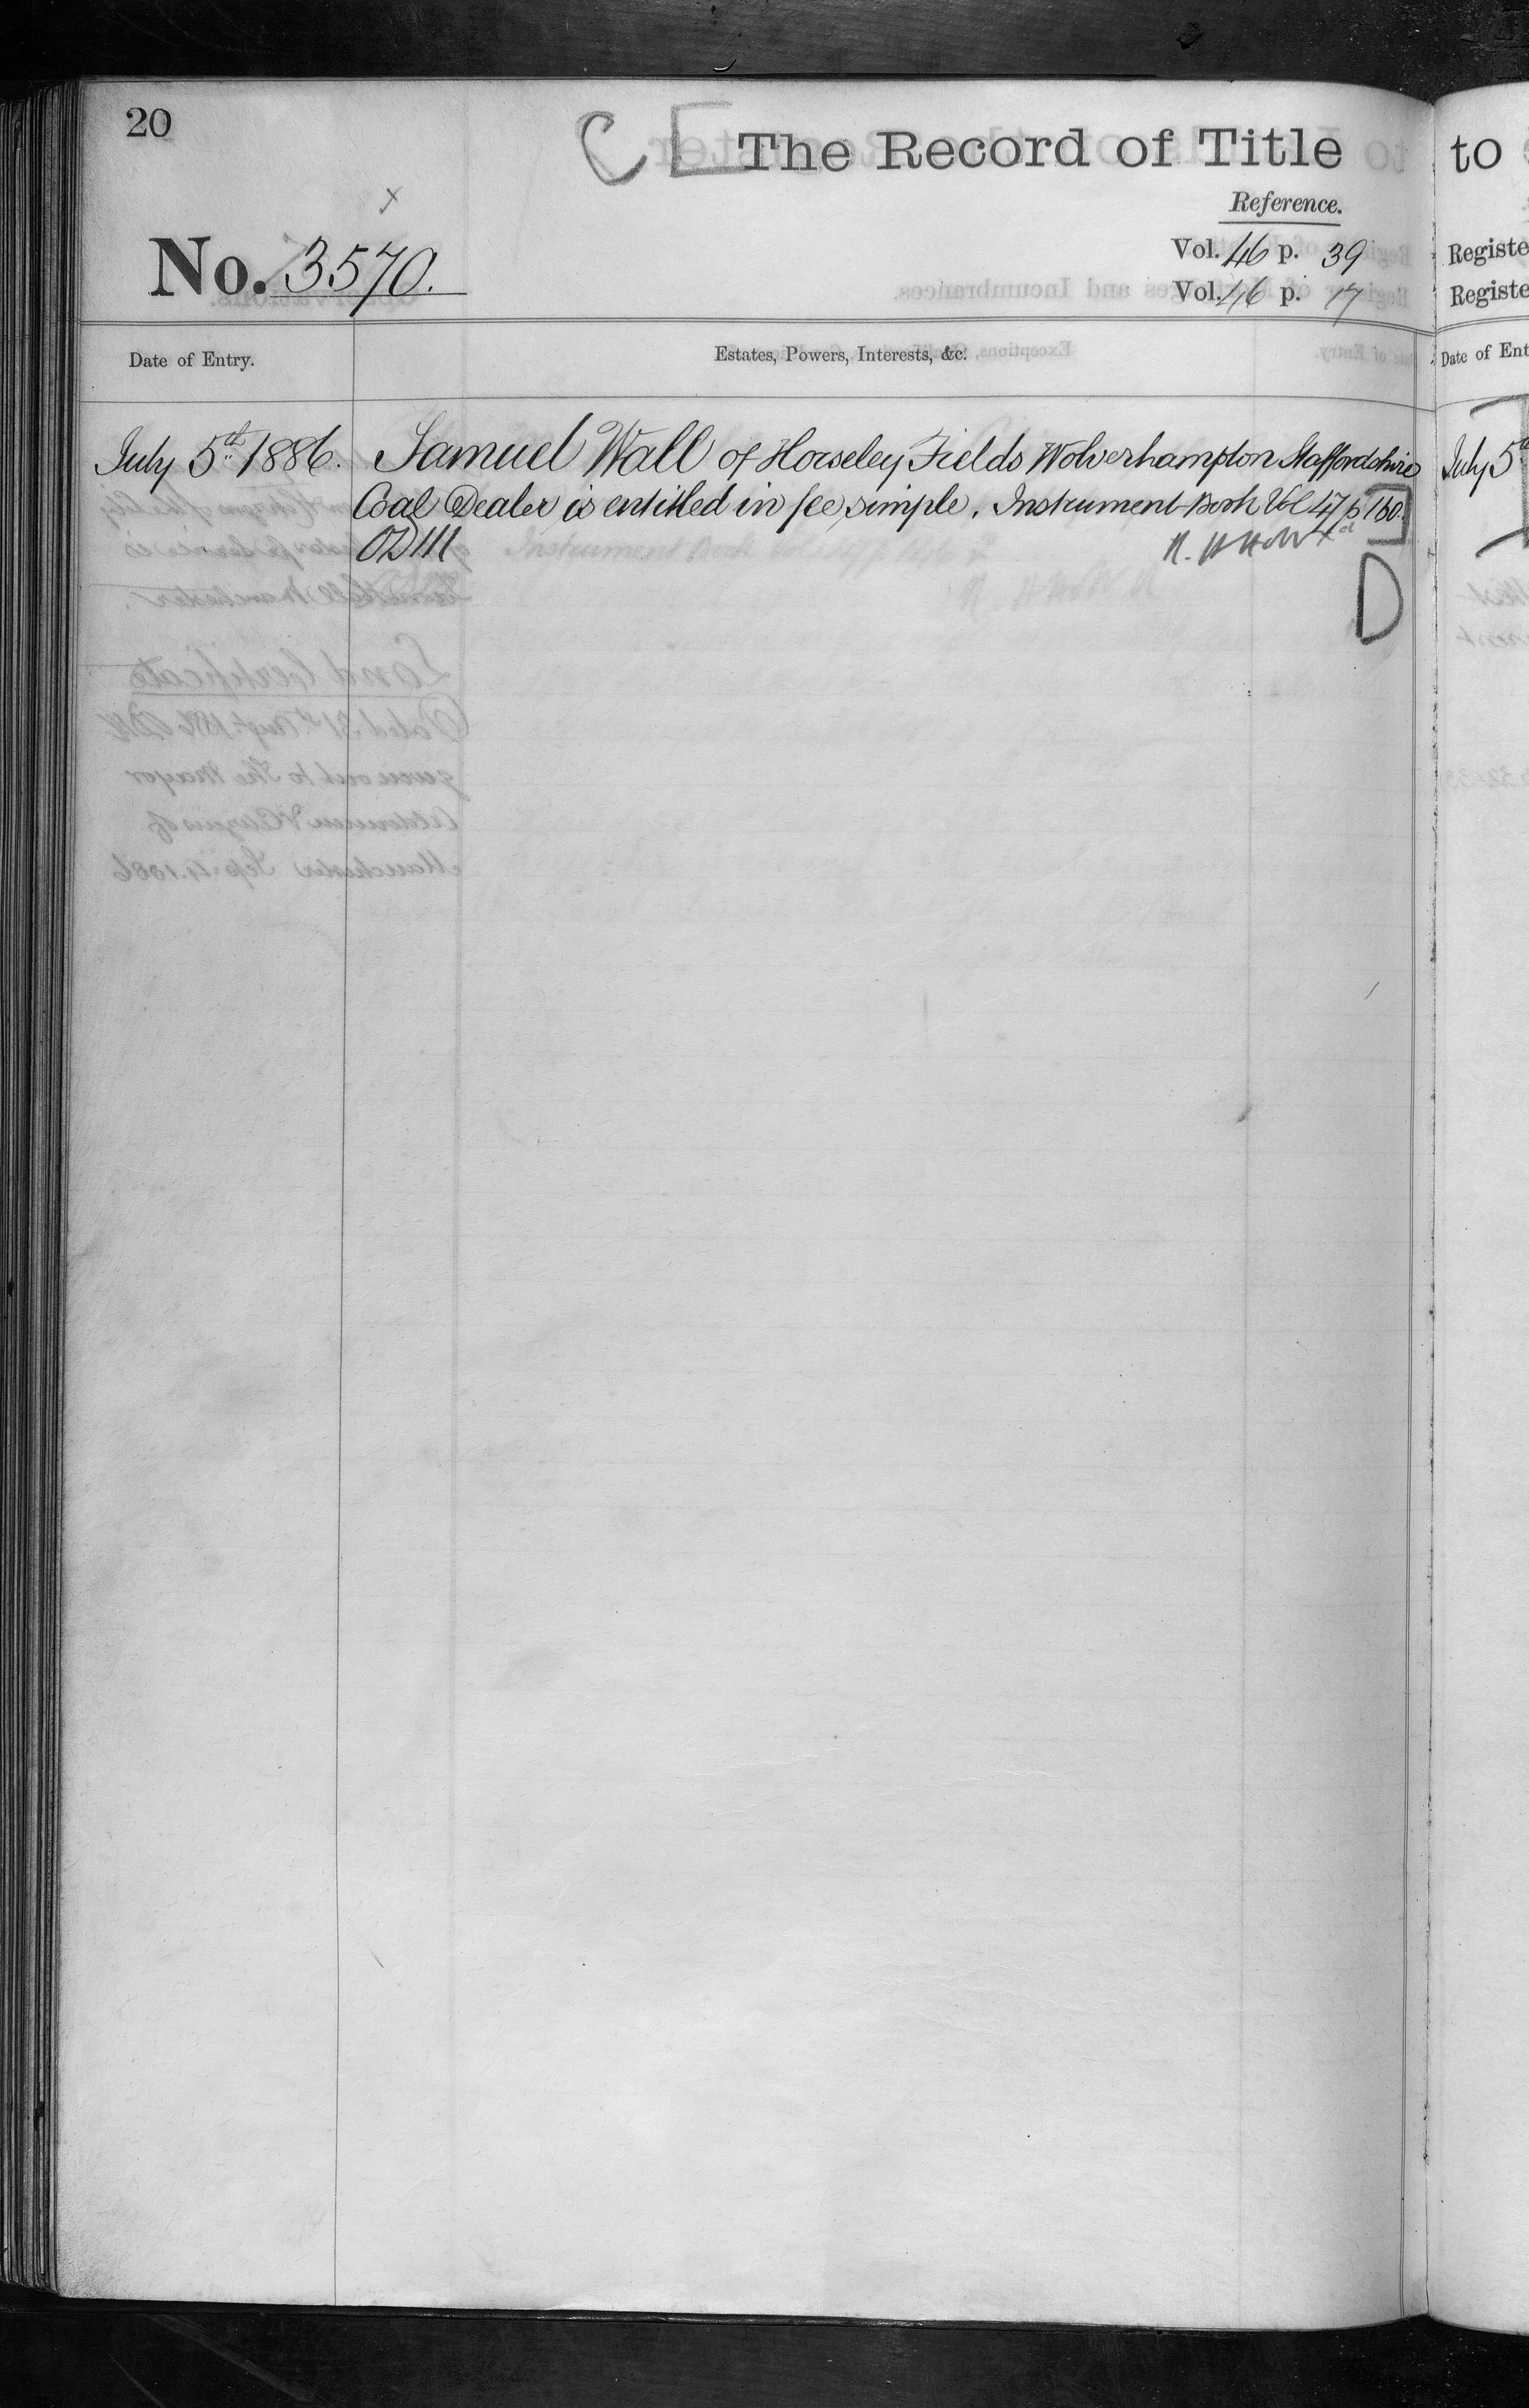 20
C
The Record of Title
to
Reference.
No. 3570.
Vol. 46 p. 39
Vol. 46 p. 17
Registe
Registe
Date of Entry.
Estates, Powers, Interests, &c.
Date of Ent
July 5th 1886.
Samuel Wall of Horseley Fields Wolverhampton Staffordshire
Coal Dealer is entitled in fee simple. Instrument Book Vol 47 p 160.
July 5
D